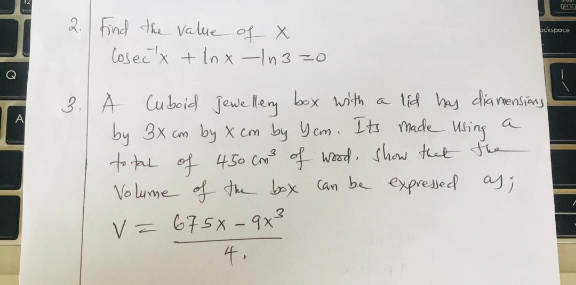 2. Find the value of X
Cosec⁻¹x + ln x - ln 3 = 0
3. A Cuboid jewellery box with a lid has diamensions
by 3x cm by x cm by y cm. Its made using a
total of 450 cm³ of wood. Show that the
Volume of the box can be expressed as;
V = 675x - 9x³
4.
Q
A